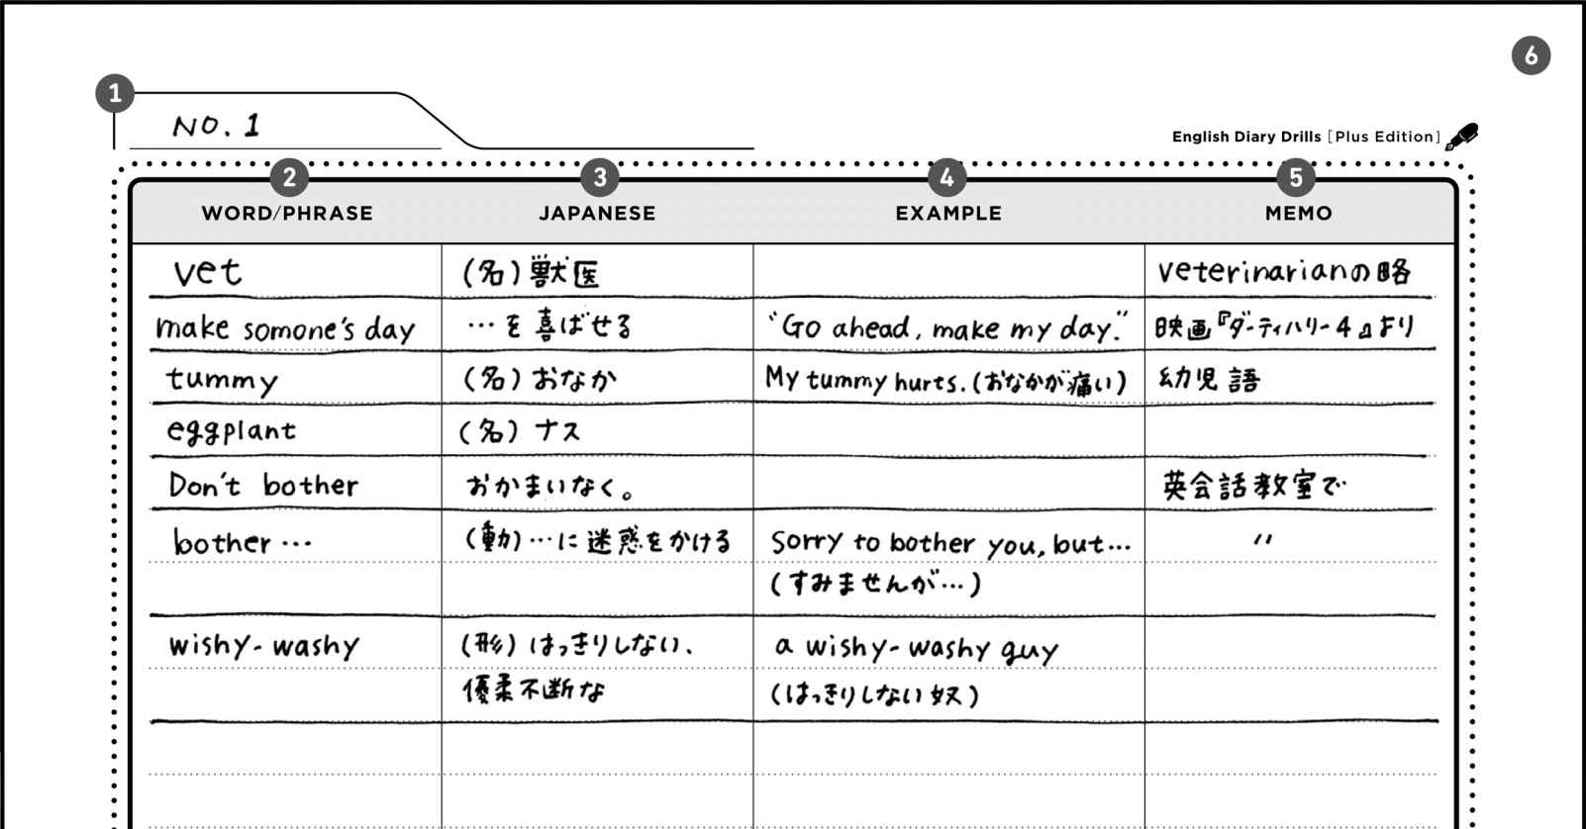 6
1
NO. 1
English Diary Drills [Plus Edition]
2 3 4 5
WORD/PHRASE JAPANESE EXAMPLE MEMO
vet (名) 獣医 veterinarianの略
make somone's day …を喜ばせる "Go ahead, make my day." 映画『ダーティハリー4』より
tummy (名) おなか My tummy hurts. (おなかが痛い) 幼児語
eggplant (名) ナス
Don't bother おかまいなく。 英会話教室で
bother … (動) …に迷惑をかける Sorry to bother you, but… 〃
(すみませんが…)
wishy-washy (形) はっきりしない、 a wishy-washy guy
優柔不断な (はっきりしない奴)